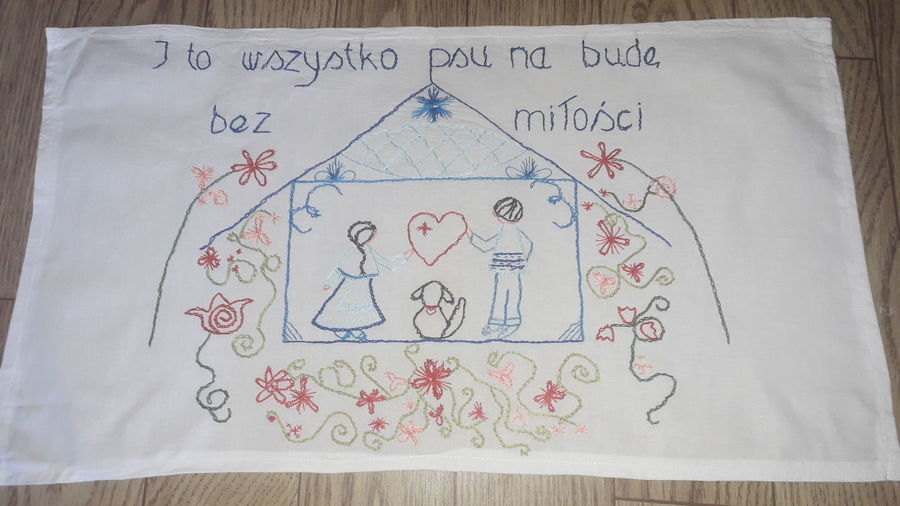 I to wszystko psu na budę
bez miłości